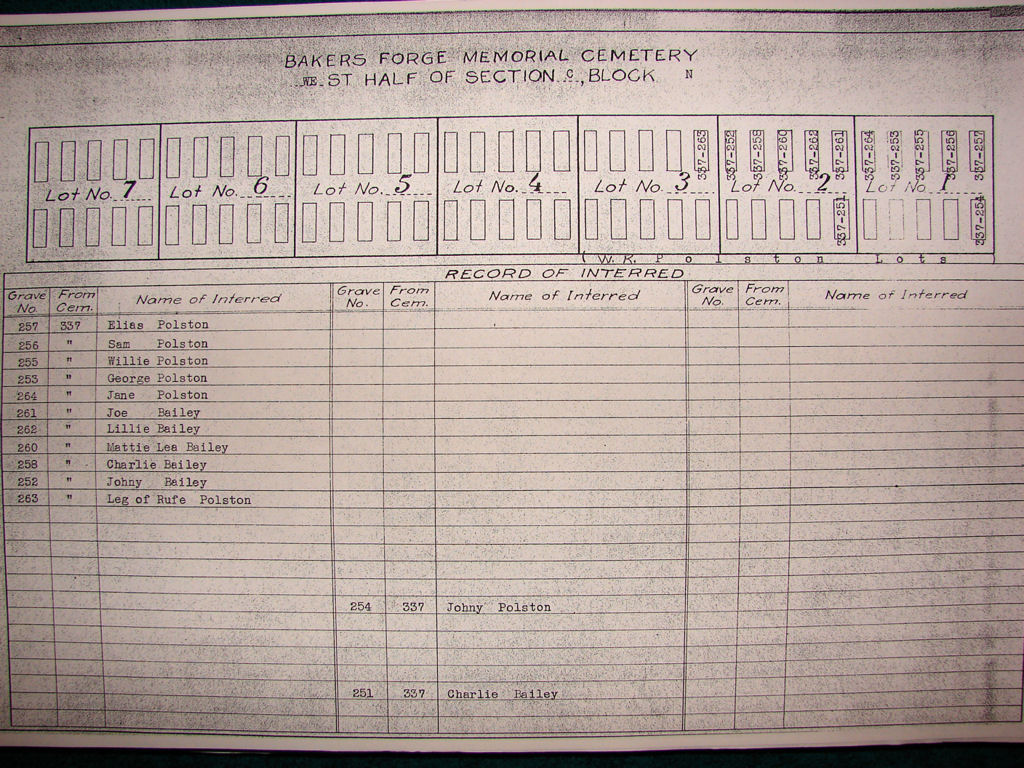 BAKERS FORGE MEMORIAL CEMETERY
WE ST HALF OF SECTION C, BLOCK N
337-263 337-252 337-258 337-260 337-262 337-261 337-264 337-253 337-255 337-256 337-257
Lot No. 7 Lot No. 6 Lot No. 5 Lot No. 4 Lot No. 3 Lot No. 2 Lot No. 1
337-251 337-254
( W. R. Polston Lots )
RECORD OF INTERRED
Grave No. From Cem. Name of Interred Grave No. From Cem. Name of Interred Grave No. From Cem. Name of Interred
257 337 Elias Polston
256 " Sam Polston
255 " Willie Polston
253 " George Polston
264 " Jane Polston
261 " Joe Bailey
262 " Lillie Bailey
260 " Mattie Lea Bailey
258 " Charlie Bailey
252 " Johny Bailey
263 " Leg of Rufe Polston
254 337 Johny Polston
251 337 Charlie Bailey